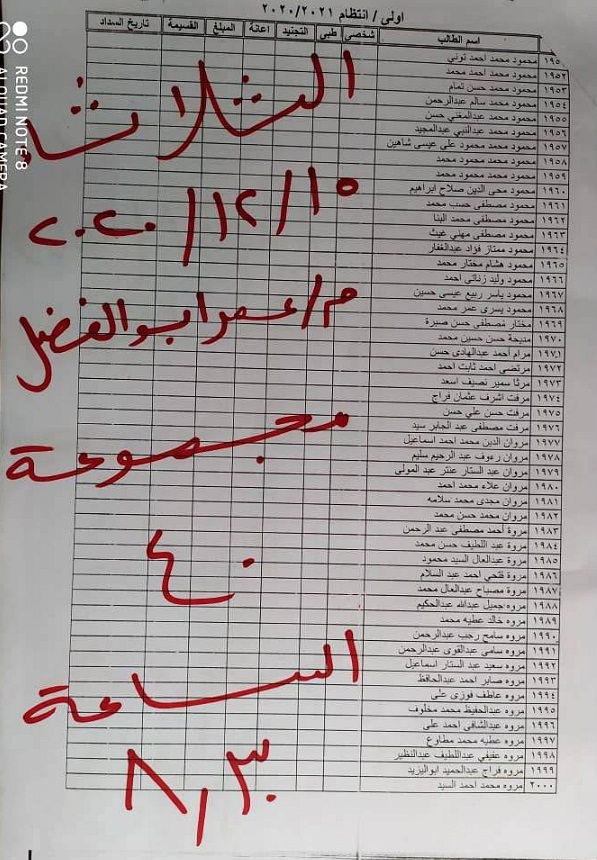 اولى / انتظام ٢٠٢٠/٢٠٢١
اسم الطالب شخصي طبي التجنيد اعانة المبلغ القسيمة تاريخ السداد
١٩٥ محمود محمد احمد توني
١٩٥٢ محمود محمد احمد محمد
١٩٥٣ محمود محمد حسن تمام
١٩٥٤ محمود محمد سالم عبدالرحمن
١٩٥٥ محمود محمد عبدالمغني حسن
١٩٥٦ محمود محمد عبدالنبي عبدالمجيد
١٩٥٧ محمود محمد محمود على عيسى شاهين
١٩٥٨ محمود محمد محمود محمد
١٩٥٩ محمود محمد محمود محمد
١٩٦٠ محمود محى الدين صلاح ابراهيم
١٩٦١ محمود مصطفى حسب محمد
١٩٦٢ محمود مصطفى محمد البنا
١٩٦٣ محمود مصطفى مهني غيث
١٩٦٤ محمود ممتاز فؤاد عبدالغفار
١٩٦٥ محمود هشام مختار محمد
١٩٦٦ محمود وليد زناتى احمد
١٩٦٧ محمود ياسر ربيع عيسى حسين
١٩٦٨ محمود يسرى عمر محمد
١٩٦٩ مختار مصطفي حسن صبرة
١٩٧٠ مديحة حسن حسين محمد
١٩٧١ مرام أحمد عبدالهادى حسن
١٩٧٢ مرتضى احمد ثابت احمد
١٩٧٣ مرثا سمير نصيف اسعد
١٩٧٤ مرفت اشرف عثمان فراج
١٩٧٥ مرفت حسن علي حسن
١٩٧٦ مرفت مصطفى عبد الجابر سيد
١٩٧٧ مروان الدين محمد احمد اسماعيل
١٩٧٨ مروان رءوف عبد الرحيم سليم
١٩٧٩ مروان عبد الستار عنتر عبد المولى
١٩٨٠ مروان علاء محمد احمد
١٩٨١ مروان مجدى محمد سلامه
١٩٨٢ مروان محمد حسن محمد
١٩٨٣ مروة أحمد مصطفى عبد الرحمن
١٩٨٤ مروة عبد اللطيف حسن محمد
١٩٨٥ مروة عبدالعال السيد محمود
١٩٨٦ مروة فتحي احمد عبد السلام
١٩٨٧ مروة مصباح عبدالعال محمد
١٩٨٨ مروه جميل عبدالله عبدالحكيم
١٩٨٩ مروه خالد عطيه محمد
١٩٩٠ مروه سامح رجب عبدالرحمن
١٩٩١ مروه سامى عبدالقوى عبدالرحمن
١٩٩٢ مروه سعيد عبد الستار اسماعيل
١٩٩٣ مروه صابر احمد عبدالحافظ
١٩٩٤ مروه عاطف فوزى على
١٩٩٥ مروه عبدالحفيظ محمد مخلوف
١٩٩٦ مروه عبدالشافى احمد على
١٩٩٧ مروه عطيه محمد مطاوع
١٩٩٨ مروه عفيفي عبداللطيف عبدالنظير
١٩٩٩ مروه فراج عبدالحميد ابواليزيد
٢٠٠٠ مروه محمد احمد السيد
الثلاثاء
١٥/١٢/٢٠٢٠
م/ عمر ابو الفضل
مجموعة
٤٠
الساعة
٨,٣٠
REDMI NOTE 8
AI QUAD CAMERA